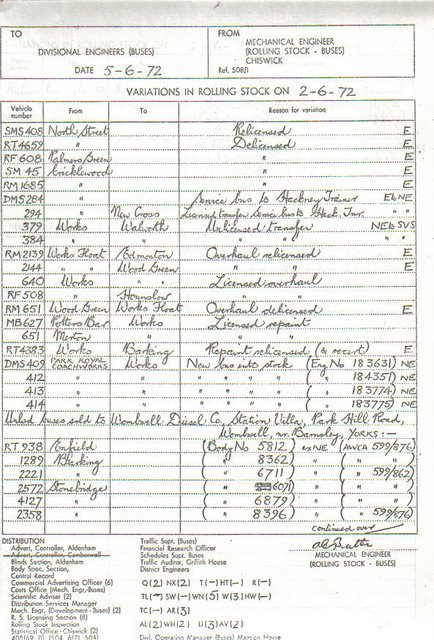 TO
DIVISIONAL ENGINEERS (BUSES)
DATE 5-6-72
FROM
MECHANICAL ENGINEER
(ROLLING STOCK - BUSES)
CHISWICK
Ref. 508/1
VARIATIONS IN ROLLING STOCK ON 2-6-72
Vehicle number From To Reason for variation
SMS 408 North Street Relicensed E
RT4659 " Delicensed E
RF 608 Palmers Green " E
SM 45 Cricklewood " E
RM 1685 " " E
DMS 284 " Service bus to Hackney Trainer E to NE
294 " New Cross Licensed transfer Service bus to Hack. Tnr. " "
379 Works Walworth Unlicensed transfer NE to SVS
384 " " " " "
RM 2139 Works Float Edmonton Overhaul relicensed E
2144 " " Wood Green " " E
640 Works " " Licensed overhaul
RF 508 " Hounslow " "
RM 651 Wood Green Works Float Overhaul delicensed E
MB 627 Potters Bar Works Licensed repaint
651 Merton " " "
RT4383 Works Barking Repaint relicensed (& recert) E
DMS 409 PARK ROYAL COACHWORKS Works New bus into stock (Eng No 183631) NE
412 " " " " " " ( " 184351) NE
413 " " " " " " ( " 183774) NE
414 " " " " " " ( " 183775) NE
Unlicd buses sold to Wombwell Diesel Co, Station Villa, Park Hill Road,
Wombwell, nr. Barnsley, YORKS:—
RT 938 Enfield (Body No 5812) ex NE (AWCA 599/876)
1289 Barking ( " 8362) " ( " " )
2221 " ( " 6711) " ( " 599/862)
2572 Stonebridge ( " 6071) " ( " " )
4127 " ( " 6879) " ( " " )
2358 " ( " 8396) " ( " 599/876)
continued over
DISTRIBUTION
Advert. Controller, Aldenham
Advert. Controller, Camberwell
Blinds Section, Aldenham
Body Spec. Section,
Central Record
Commercial Advertising Officer (6)
Costs Office (Mech. Engr-Buses)
Scientific Adviser (2)
Distribution Services Manager
Mech. Engr. (Development - Buses) (2)
R.S. Licensing Section (8)
Rolling Stock Inspection
Statistical Office - Chiswick (2)
Traffic Supt. (Buses)
Financial Research Officer
Schedules Supt. Buses
Traffic Auditor, Griffith House
District Engineers
Q(2) NX(2) T(—) HT(—) R(—)
TL(—) SW(—) WN(5) W(3) HW(—)
TC(—) AR(3)
AL(2) WH(2) U(3) AV(2)
Divl. Operating Manager (Buses) Mansion House
MECHANICAL ENGINEER
(ROLLING STOCK - BUSES)